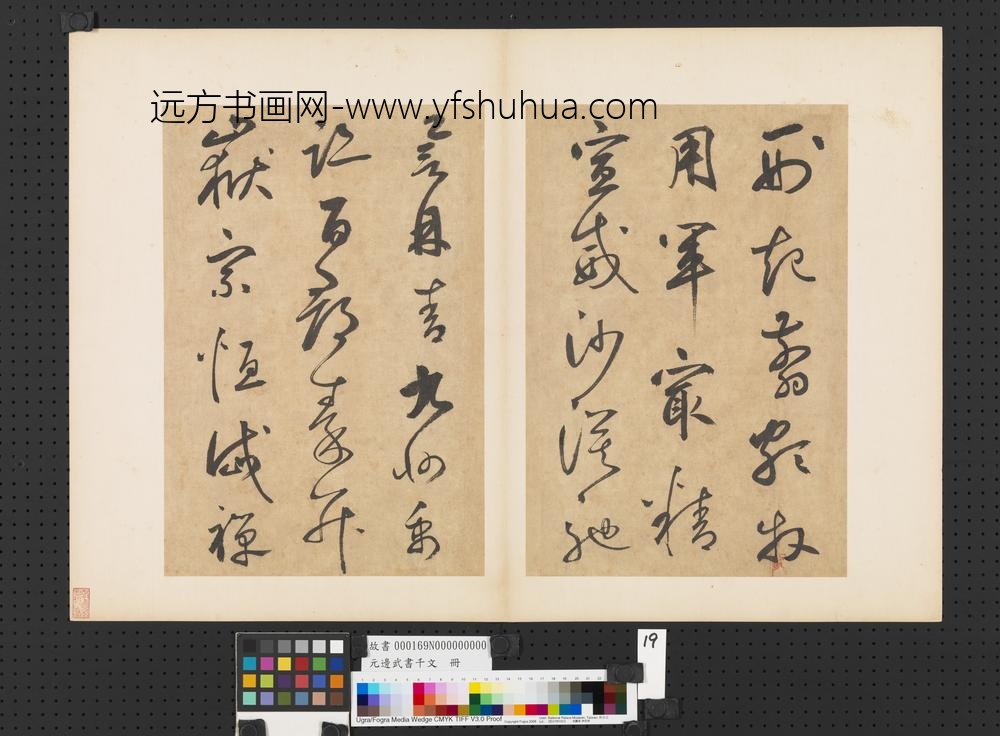 远方书画网-www.yfshuhua.com
刑起翦頗牧
用軍最精
宣威沙漠馳
譽丹青九州禹
跡百郡秦并
嶽宗恒岱禪
19
故書 000169N000000000
元邊武書千文 冊
Ugra/Fogra Media Wedge CMYK TIFF V3.0 Proof